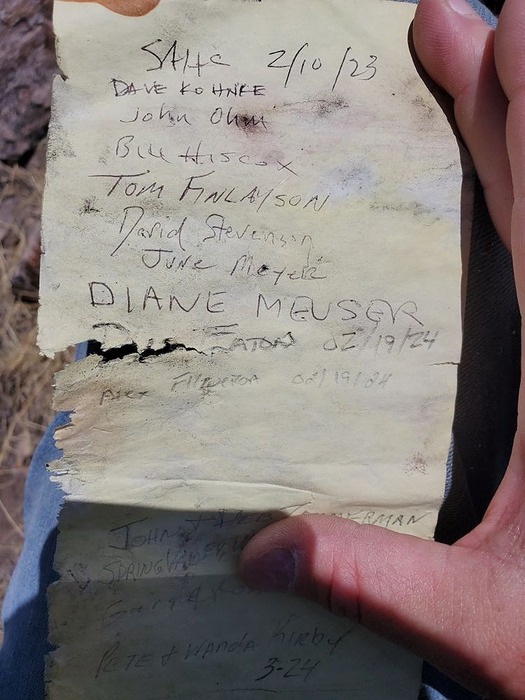 SAHC 2/10/23
DAVE KOHNKE
John Ohm
Bill Hiscox
TOM FINLAYSON
David Stevenson
June Meyer
DIANE MEUSER
EATON 02/19/24
ALEX FIGUEROA 02/19/24
JOHN +
SPRING VALLEY,
PETE & WANDA Kirby
3-24